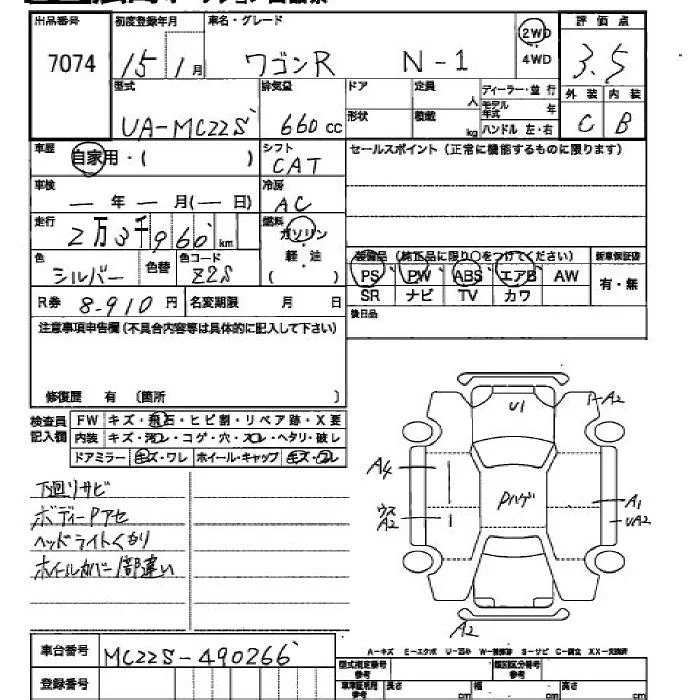 出品番号 初度登録年月 車名・グレード 評価点
7074 15 1月 ワゴンR N-1 2WD 4WD 3.5
型式 排気量 ドア 定員 人 ディーラー・並行 外装 内装
UA-MC22S 660cc 形状 積載 kg モデル年式 年 C B
ハンドル 左・右
車歴 自家用・( ) シフト CAT セールスポイント (正常に機能するものに限ります)
車検 ー年ー月(ー日) 冷房 AC
走行 2万3千960km 燃料 ガソリン
軽・油
( )
装備品 (純正品に限り○をつけてください) 新車保証書
色 シルバー 色替 色コード Z2S PS PW ABS エアB AW 有・無
SR ナビ TV カワ
R券 8-910円 名変期限 月 日 後日品
注意事項申告欄 (不具合内容等は具体的に記入して下さい)
修復歴 有 (箇所 )
検査員記入欄 FW キズ・飛石・ヒビ割・リペア跡・X要
内装 キズ・汚レ・コゲ・穴・スレ・ヘタリ・破レ
ドアミラー キズ・ワレ ホイール・キャップ キズ・ワレ
下廻りサビ
ボディーPアセ
ヘッドライトくもり
ホイールカバー1部違い
U1
A2
A4
Pハゲ
A1
ウス
A2
UA2
A2
A-キズ E-エクボ U-凹み W-補修跡 S-サビ C-腐食 XX-交換済
車台番号 MC22S-490266
型式指定番号 参考 類別区分番号 参考
登録番号 車車証明用 参考 長さ cm 幅 cm 高さ cm